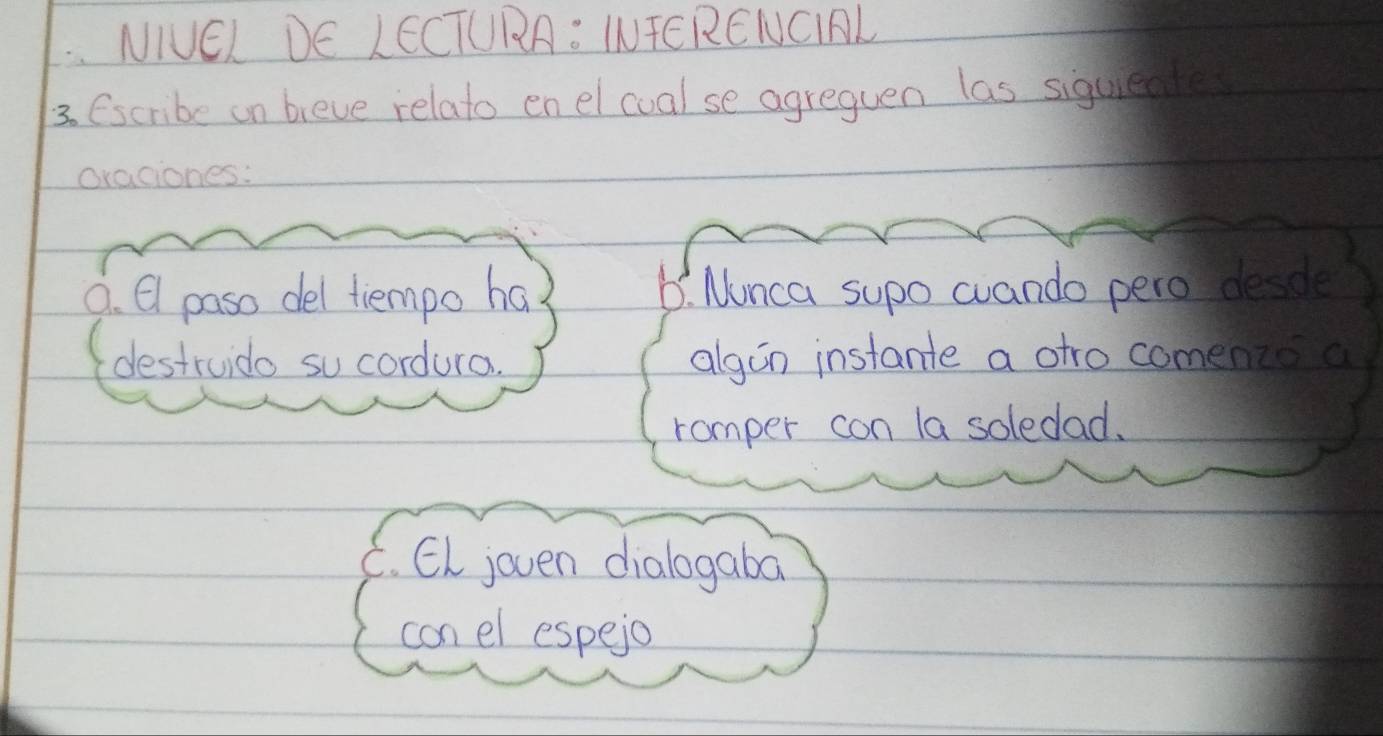 NIVEL DE LECTURA: INFERENCIAL
3. Escribe un breve relato en el cual se agreguen las siguientes
oraciones:
a. El paso del tiempo ha
destruido su cordura.
b. Nunca supo cuando pero desde
algún instante a otro comenzó a
romper con la soledad.
c. EL joven dialogaba
con el espejo